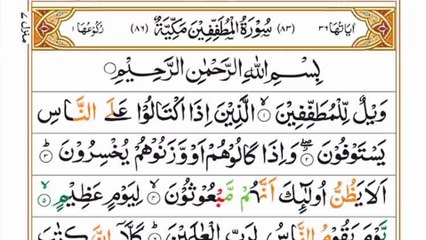 اٰيَاتُهَا ٣٦ (٨٣) سُوْرَةُ الْمُطَفِّفِيْنَ مَكِّيَّةٌ (٨٦) رُكُوْعُهَا ١
منزل ٧
بِسْمِ اللّٰهِ الرَّحْمٰنِ الرَّحِيْمِ
وَيْلٌ لِّلْمُطَفِّفِيْنَ ۝١ الَّذِيْنَ اِذَا اكْتَالُوْا عَلَى النَّاسِ
يَسْتَوْفُوْنَ ۝٢ وَاِذَا كَالُوْهُمْ اَوْ وَّزَنُوْهُمْ يُخْسِرُوْنَ ۝٣
اَلَا يَظُنُّ اُولٰٓئِكَ اَنَّهُمْ مَّبْعُوْثُوْنَ ۝٤ لِيَوْمٍ عَظِيْمٍ ۝٥
يَّوْمَ يَقُوْمُ النَّاسُ لِرَبِّ الْعٰلَمِيْنَ ۝٦ كَلَّاۤ اِنَّ كِتٰبَ